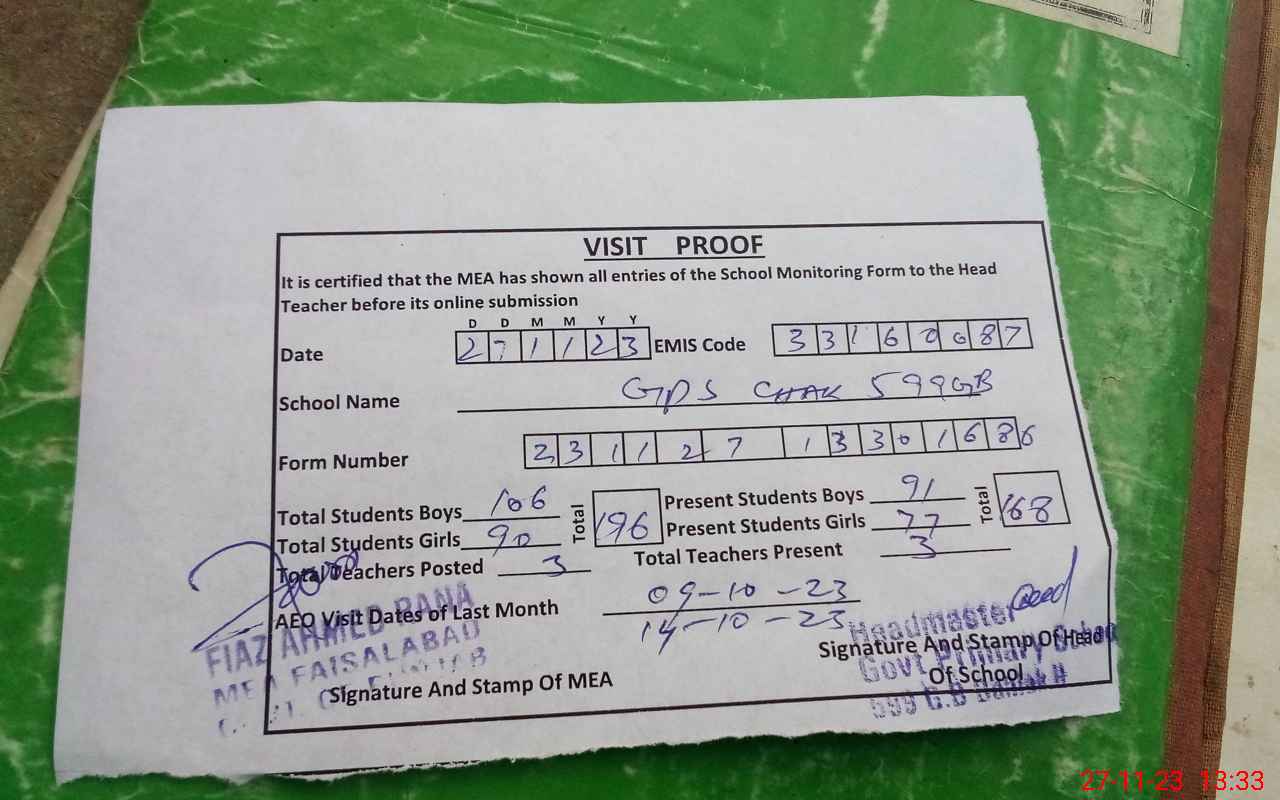 VISIT PROOF
It is certified that the MEA has shown all entries of the School Monitoring Form to the Head
Teacher before its online submission
D D M M Y Y
Date 2 7 1 1 2 3 EMIS Code 3 3 1 6 0 0 8 7
School Name GPS CHAK 599GB
Form Number 2 3 1 1 2 7 1 3 3 0 1 6 8 6
Total Students Boys 106 Total 196 Present Students Boys 91 Total 168
Total Students Girls 90 Present Students Girls 77
Total Teachers Posted 3 Total Teachers Present 3
AEO Visit Dates of Last Month 09-10-23
14-10-23
FIAZ AHMED RANA
MEA FAISALABAD
Signature And Stamp Of MEA
Headmaster
Signature And Stamp Of Head
Govt Primary School
Of School
599 G.B
27-11-23 13:33